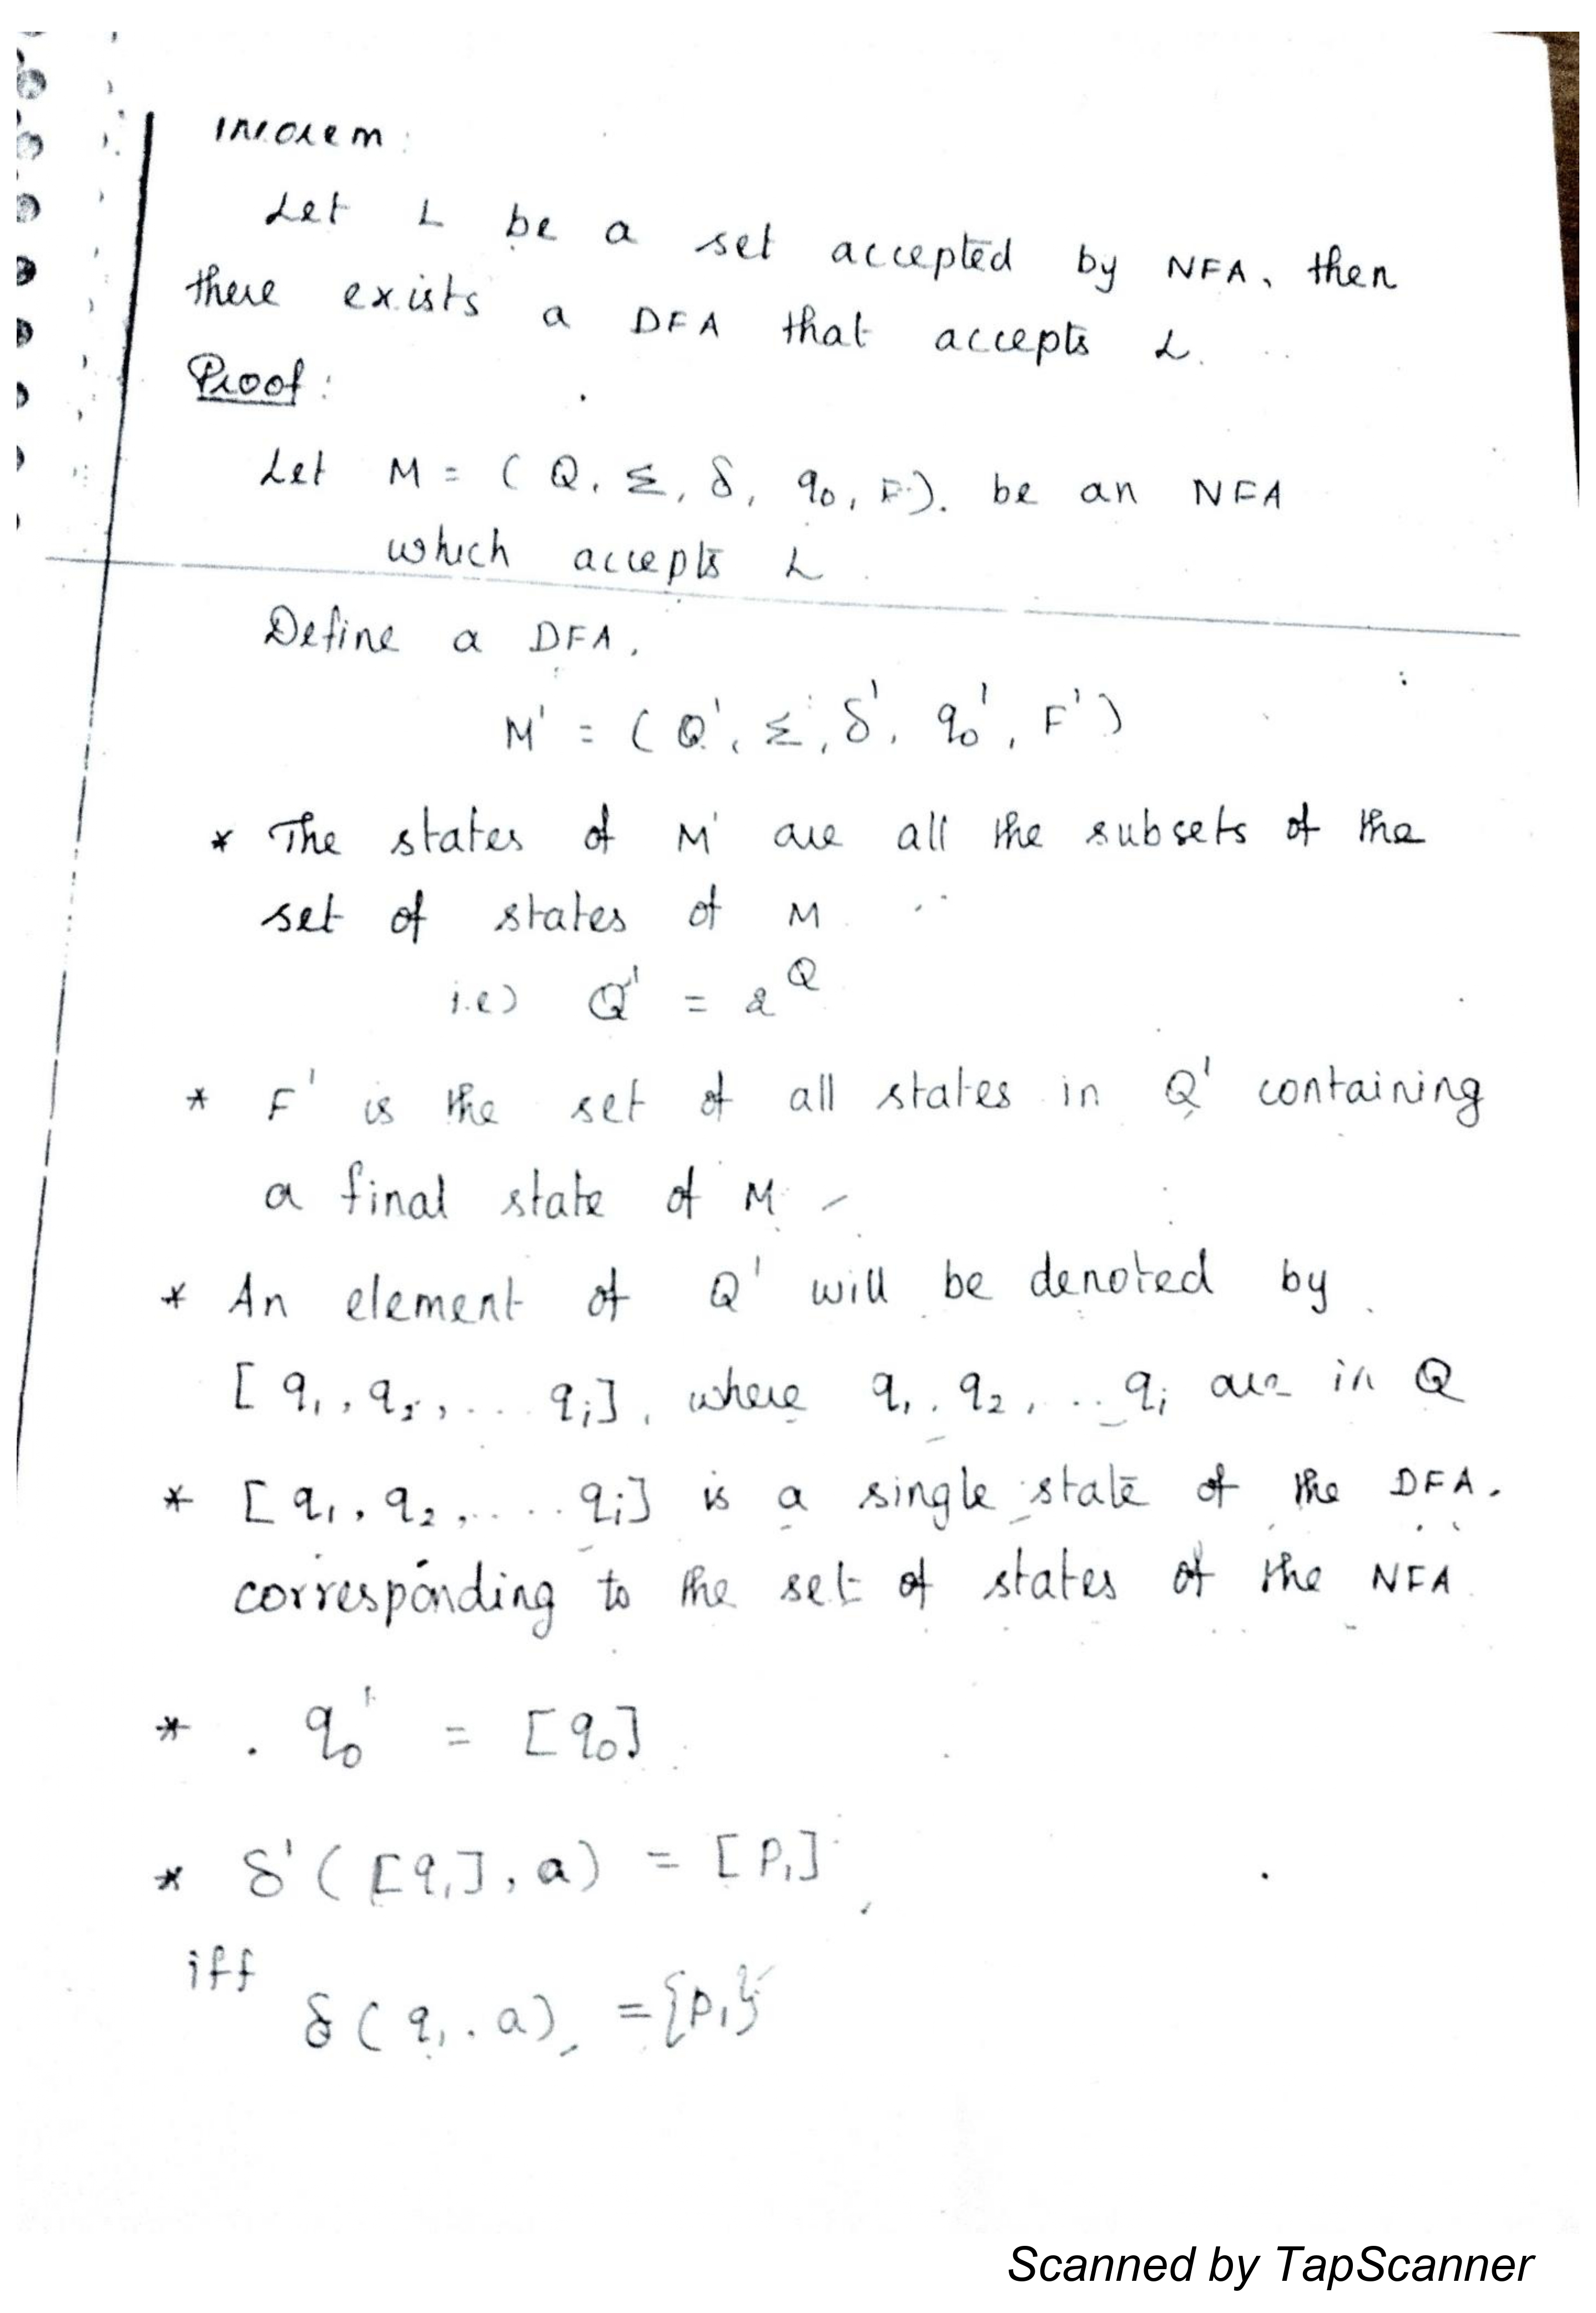 Theorem:
Let L be a set accepted by NFA, then
there exists a DFA that accepts L.
Proof:
Let M = (Q, Σ, δ, q₀, F). be an NFA
which accepts L.
Define a DFA,
M' = (Q', Σ, δ', q₀', F')
* The states of M' are all the subsets of the
set of states of M
i.e) Q' = 2^Q
* F' is the set of all states in Q' containing
a final state of M
* An element of Q' will be denoted by
[q₁, q₂, ... qᵢ], where q₁, q₂, ... qᵢ are in Q
* [q₁, q₂, .... qᵢ] is a single state of the DFA,
corresponding to the set of states of the NFA
* q₀' = [q₀]
* δ'([q₁], a) = [p₁]
iff
δ(q₁, a) = {p₁}
Scanned by TapScanner